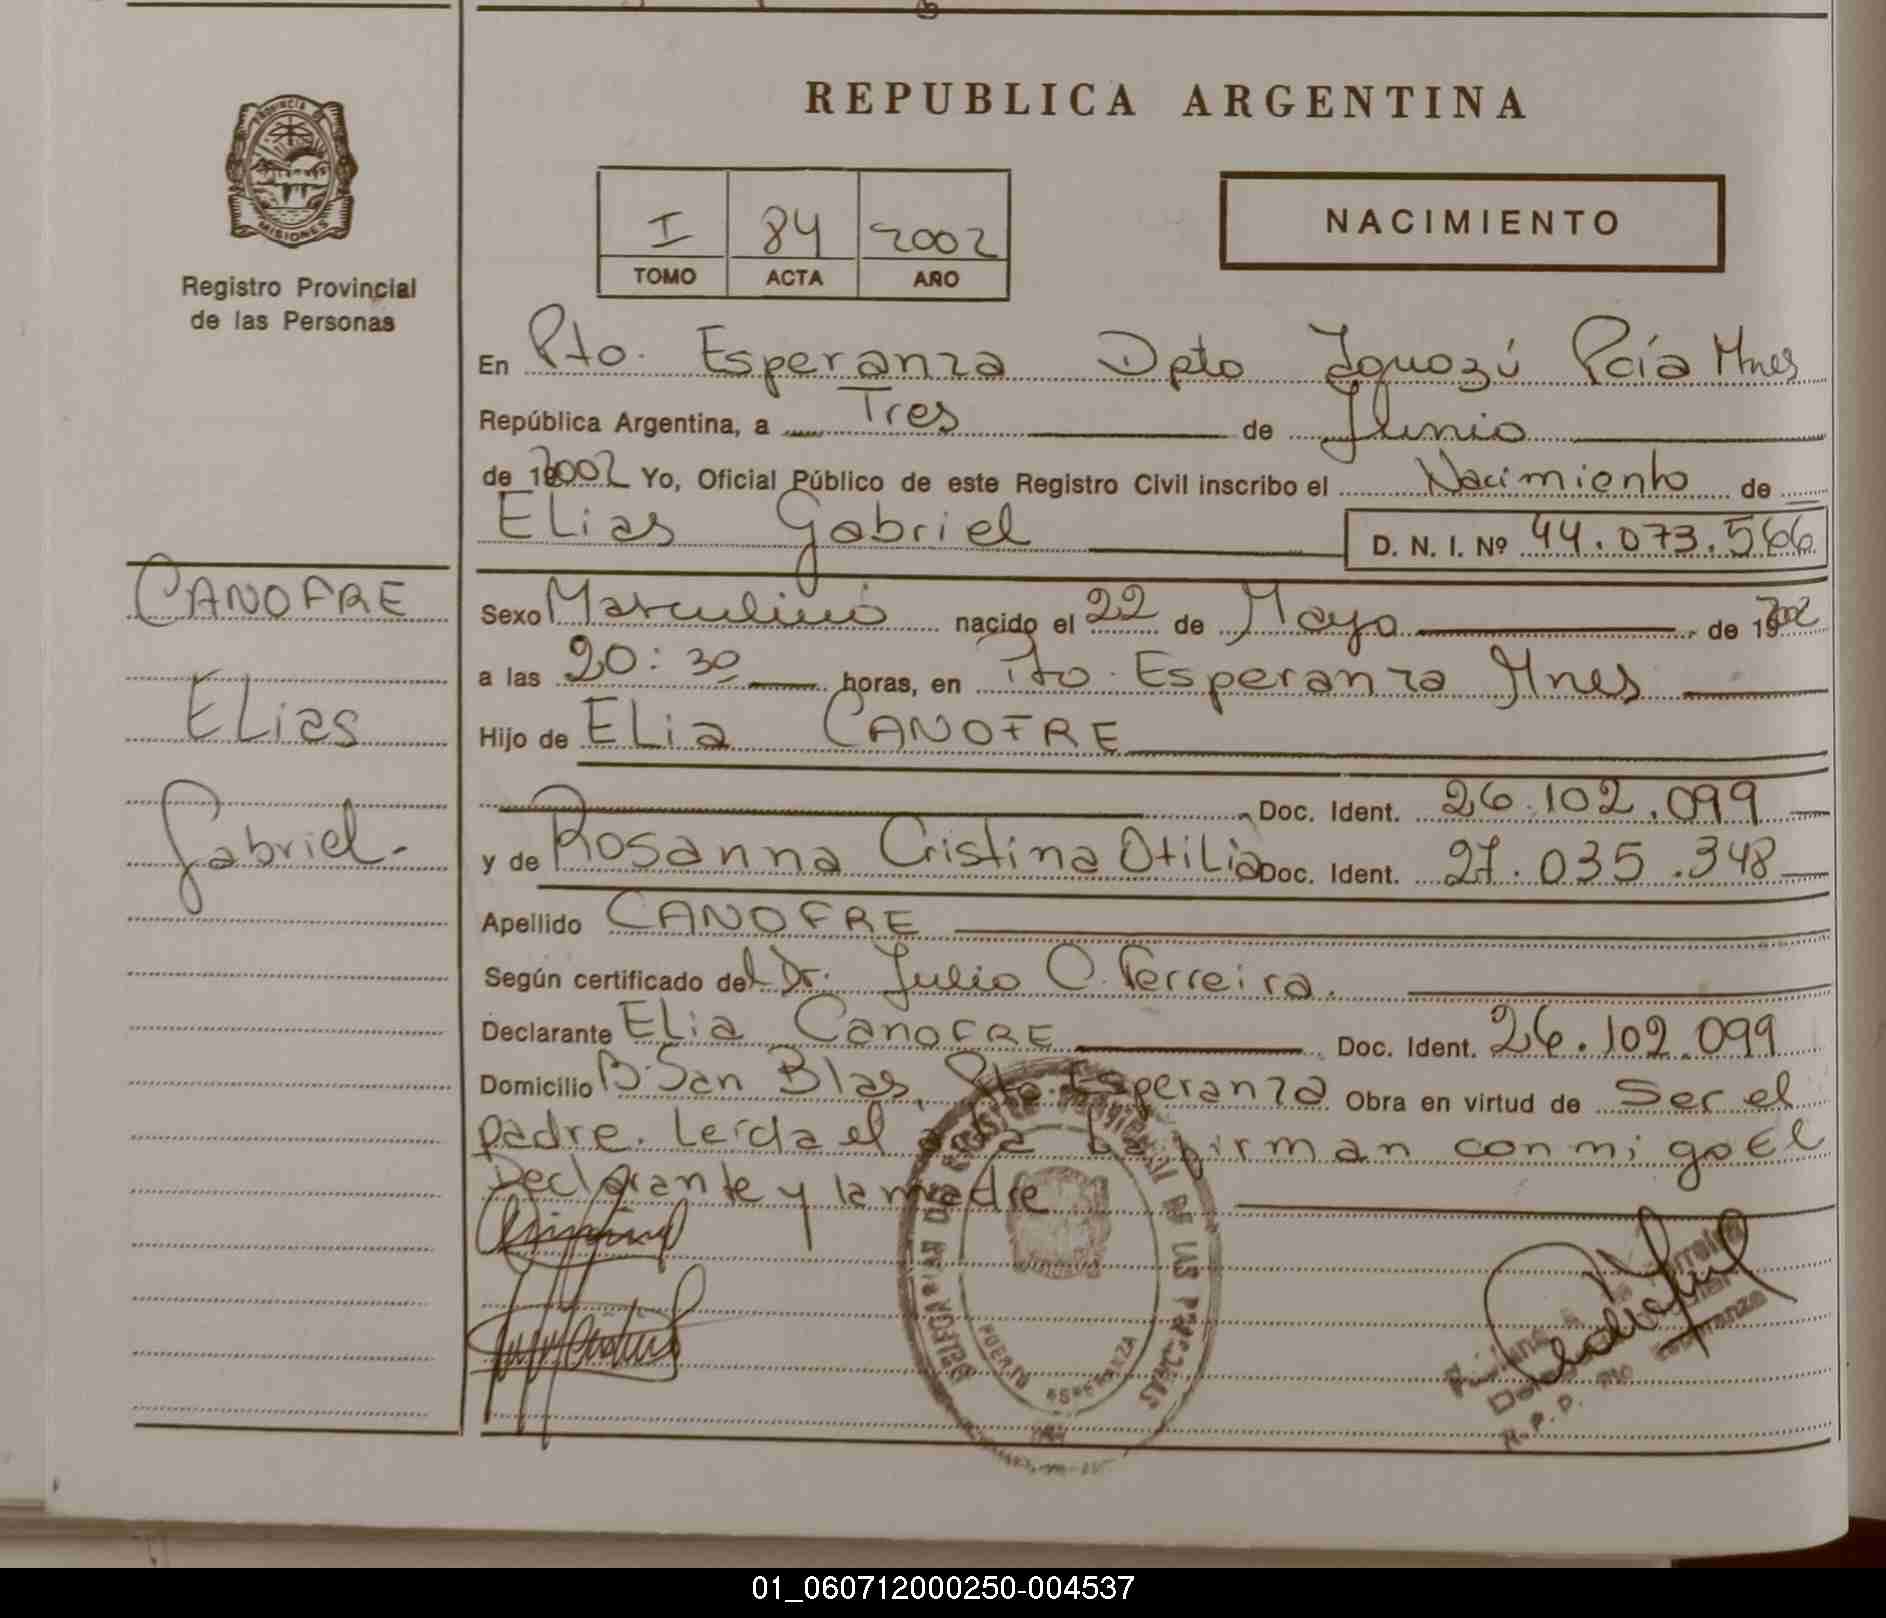 REPUBLICA ARGENTINA
PROVINCIA
MISIONES
Registro Provincial
de las Personas
I 84 2002
TOMO ACTA AÑO
NACIMIENTO
En Pto. Esperanza Dpto Iguazú Pcia Mnes
República Argentina, a Tres de Junio
de 192002 Yo, Oficial Público de este Registro Civil inscribo el Nacimiento de
Elias Gabriel D. N. I. Nº 44.073.566
CANOFRE
Elias
Gabriel.-
Sexo Masculino nacido el 22 de Mayo de 192002
a las 20:30 horas, en Pto. Esperanza Mnes
Hijo de Elia CANOFRE
Doc. Ident. 26.102.099
y de Rosanna Cristina Otilia Doc. Ident. 27.035.348
Apellido CANOFRE
Según certificado del Dr. Julio C. Ferreira.
Declarante Elia CANOFRE Doc. Ident. 26.102.099
Domicilio B. San Blas, Pto. Esperanza Obra en virtud de ser el
padre. Leída el acta la firman conmigo El
Declarante y la madre
PUERTO ESPERANZA
R. P. P. Pto Esperanza
01_060712000250-004537